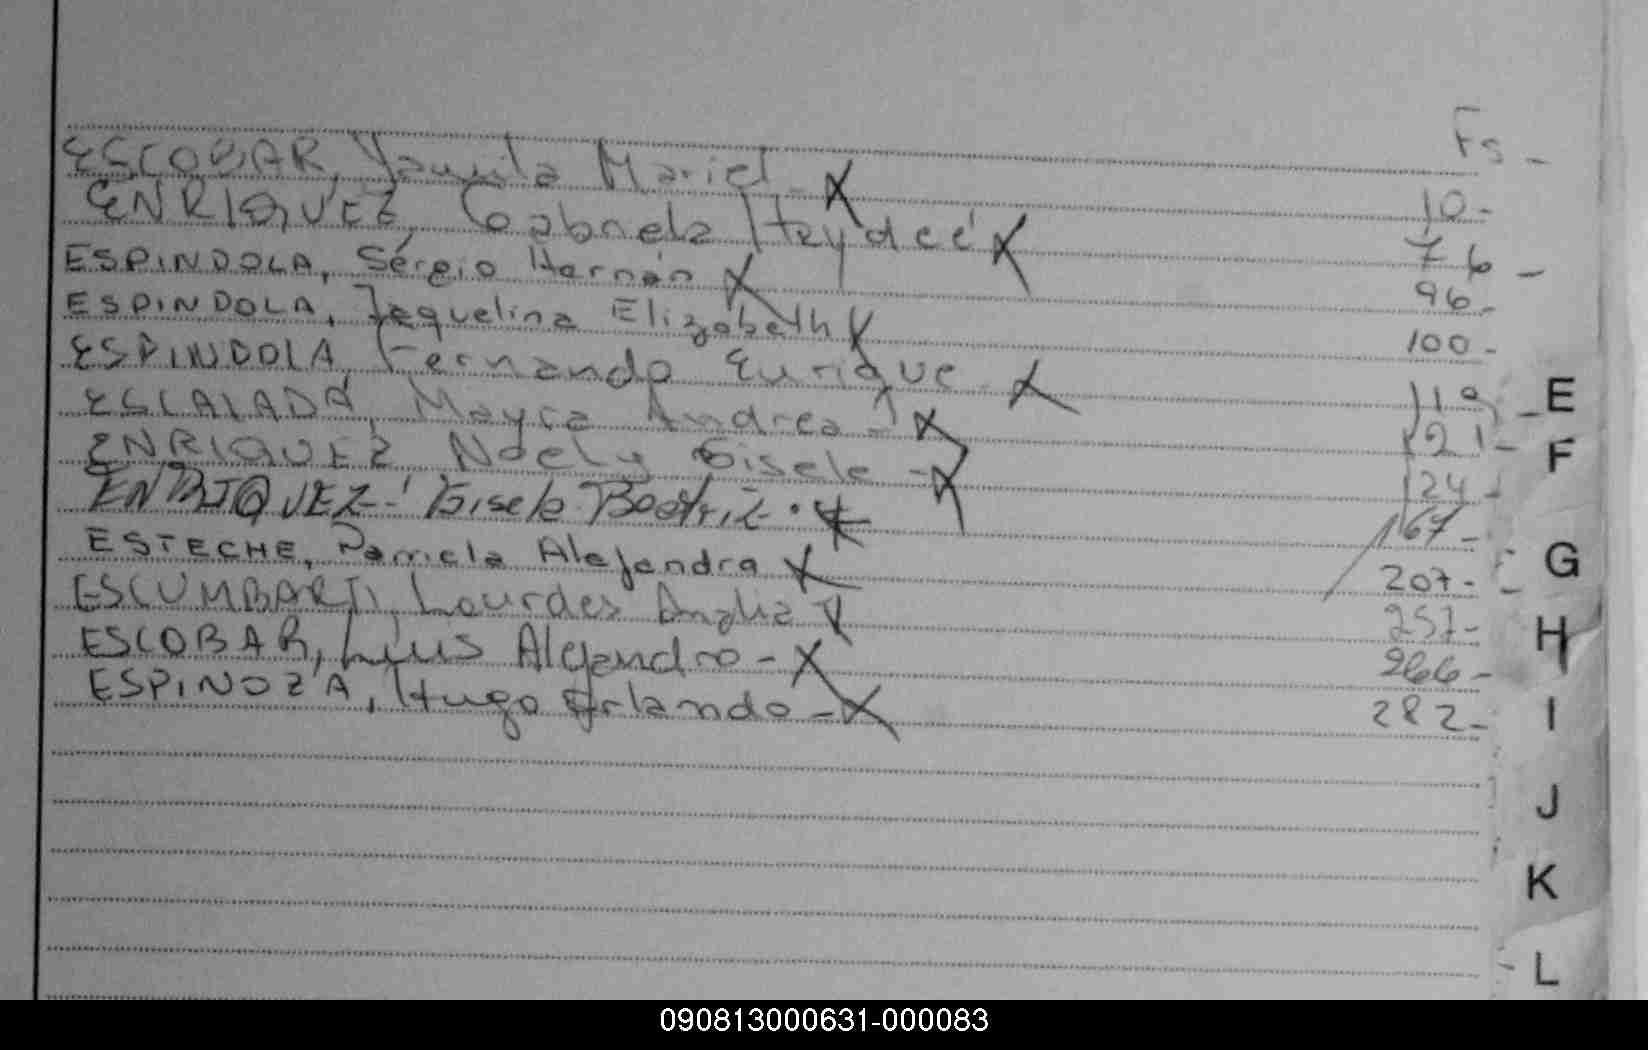 Fs -
ESCOBAR, Yamila Mariel - X 10 -
ENRIQUEZ, Gabriela Haydeé X 76 -
ESPINDOLA, Sérgio Hernán X 96 -
ESPINDOLA, Jaquelina Elizabeth X 100 -
ESPINDOLA, Fernando Enrique - X 119 -
ESCALADA, Mayra Andrea - X 121 -
ENRIQUEZ Noely Gisele - X 124 -
ENRIQUEZ Gisela Beatriz . X 167 -
ESTECHE, Pamela Alejandra X 207 -
Lourdes X 257 -
ESCOBAR, Luis Alejandro - X 266 -
ESPINOZA, Hugo Orlando - X 282 -
E
F
G
H
I
J
K
L
090813000631-000083